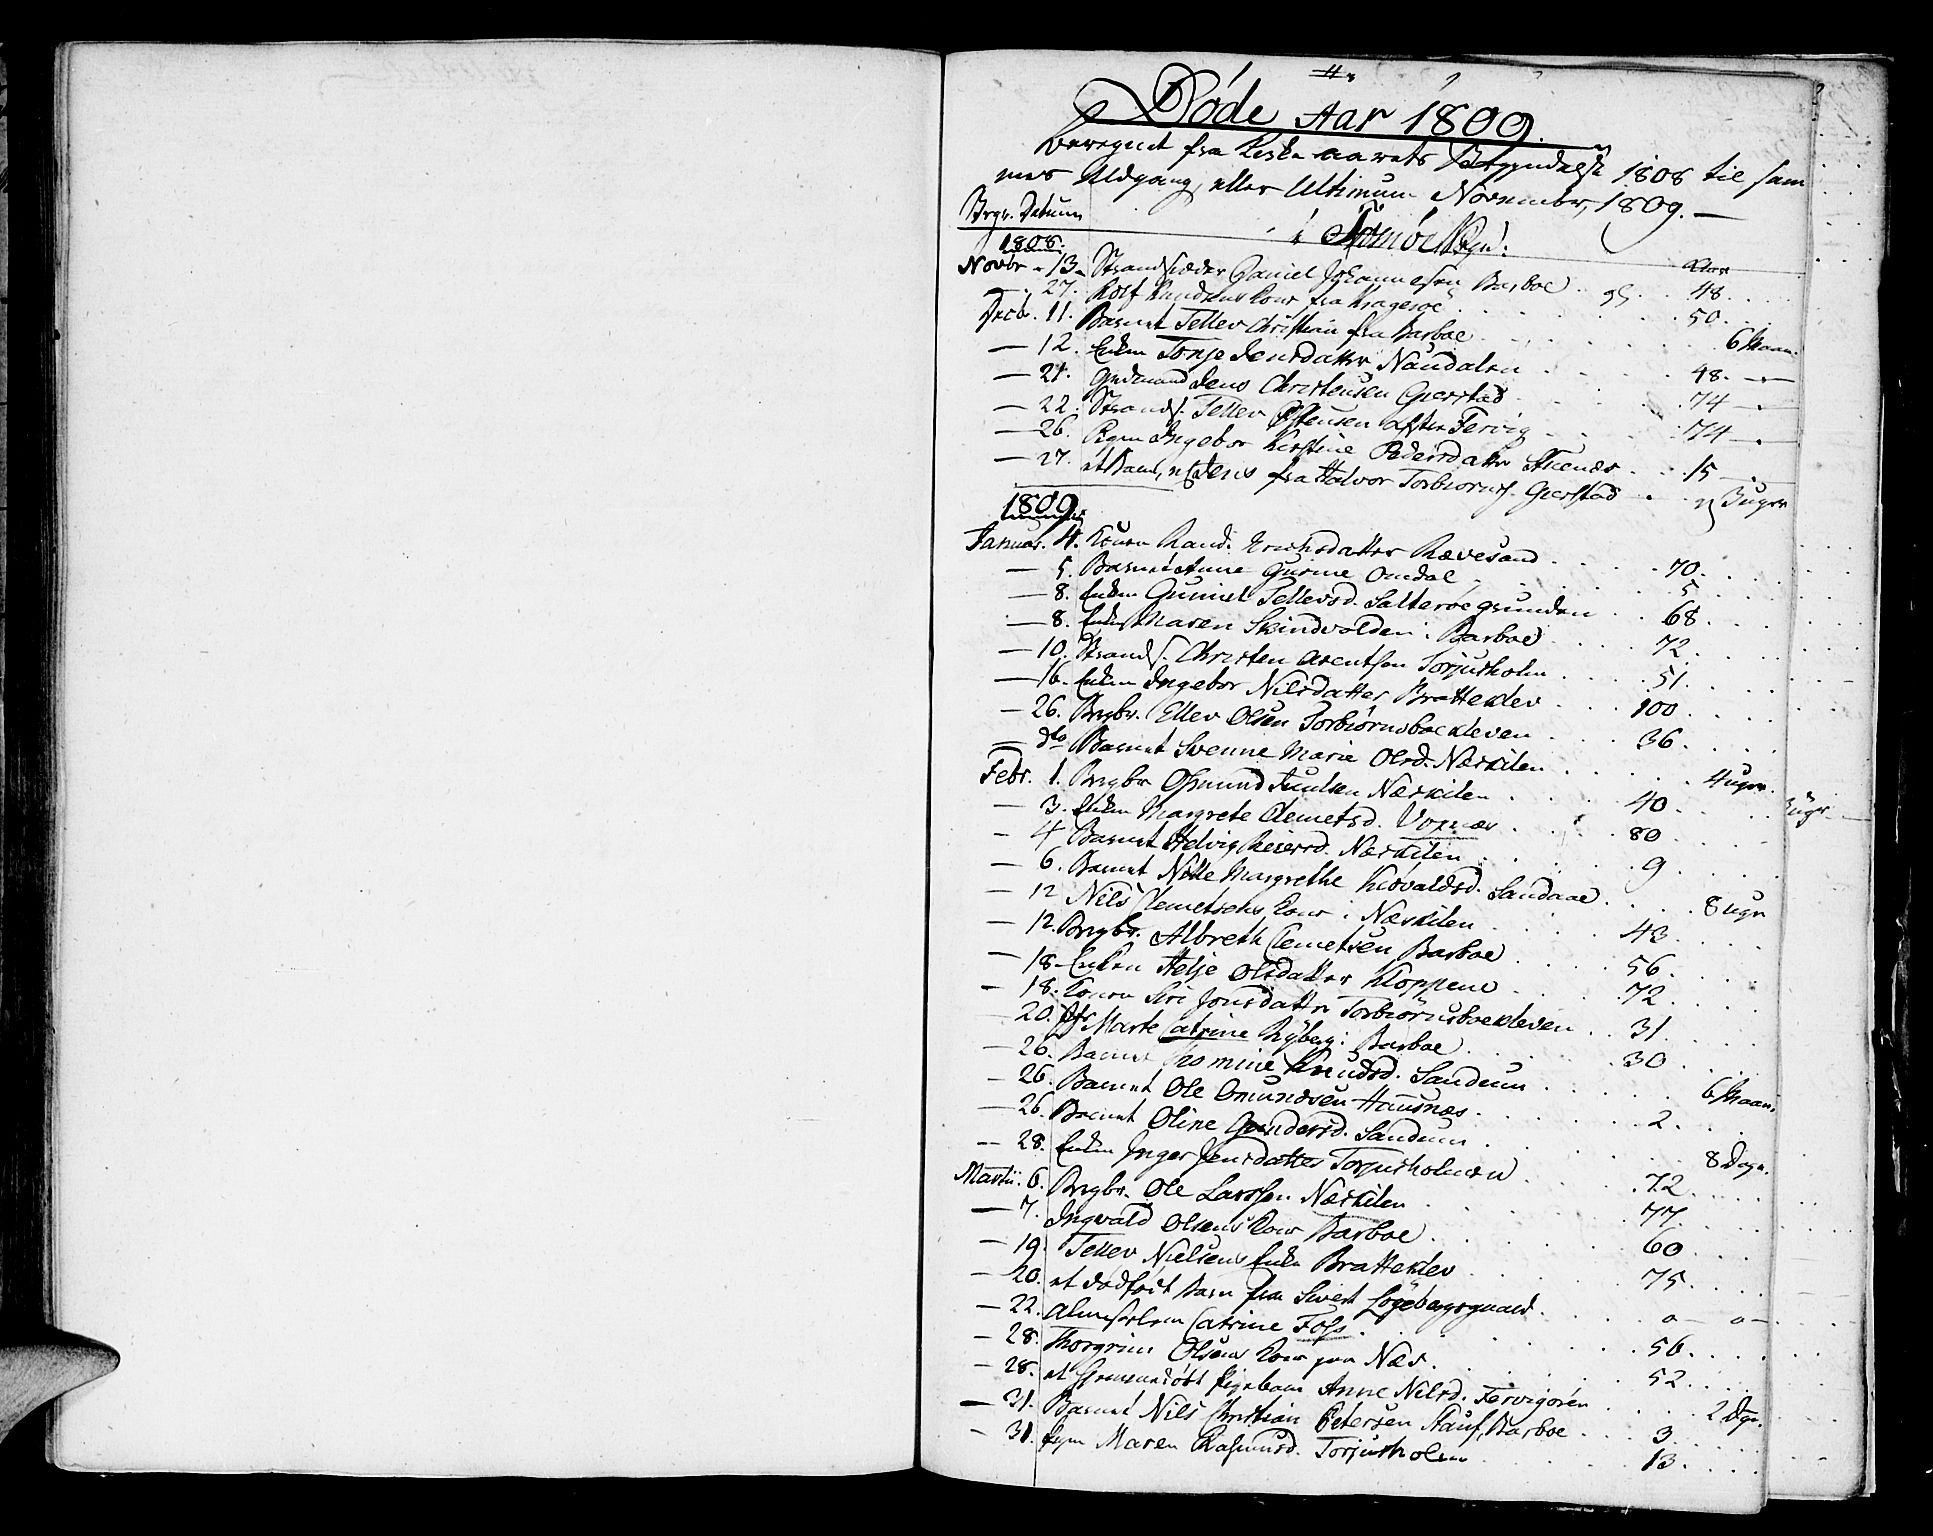 Døde Aar 1809.
beregnet fra Kirke aarets Begyndelse 1808 til sam
mes Udgang, eller Ultimum November, 1809. —
Begr. Datum
i Tromøe Sogn:
1808. Aar
Novbr. 13. Strandsidder Daniel Johannesen Barboe . . 48.
— 27. Rolf Knudsens Kone fra Kragerøe . . 50.
Decb. 11. Barnet Tellev Christian fra Barboe . . 6 Maan.
— 12. Enken Tonje Jensdatter Naudalen . . 48. —
— 21. Gudmand Jens Christensen Gierstad . . 74 —
— 22. Strands. Tellev Østensen Fervig . . 74 —
— 26. Pigen Ingebor Kirstine Pedersdatter . . 15 —
— 27. et Barn, n. Jens fra Halvor Torbiørns. Gierstad . 3 uger
1809
Januar. 4. Konen Rand. Erichsdatter Rævesand . . 70.
— 5. Barnet Anne Gurine Omdal . . 5
— 8. Enken Guniel Tellevsd. Salterøegrunden . . 68.
— 8. Enken Maren Skindvolden i Barboe . . 72.
— 10. Strands. Christen Arentsen Torjusholm . . 51.
— 16. Enken Ingebor Nilsdatter Bratteklev . . 100
— 26. Begbr. Ellev Olsen Torbiørnsboekleven . . 36.
— dto Barnet Svenne Marie Olsd. Næskilen . . 4 uger.
Febr. 1. Begbr Osmund Knutsen Næskilen . . 40
— 3. Enken Margrete Clemetsd. Vognæs . . 80
— 4 Barnet Helvig Reiersd. Næskilen . . 9
— 6. Barnet Nille Margrethe Sandaae . . 8 uger
— 12 Nils Clemetsens Kone i Næskilen . . 43
— 12. Begbr. Albreth Clemetsen Barboe . . 56
— 18. Enken Helje Olsdatter Kloppene . . 72
— 18. Konen Siri Jonsdatter Torbiørnsboekleven . . 31.
— 20. Marte Catrine Ryberg i Barboe . . 30
— 26. Barnet Thomine Knudsd. Sandum . . 6 Maan.
— 26. Barnet Ole Omundsen Hausnæs . . 2.
— 26. Barnet Oline Gundersd. Sandum . . 8 Dage.
— 28. Enken Inger Jensdatter Torjusholmen . . 72
Martii. 6. Begbr. Ole Larssen Næskilen . . 77.
— 7. Ingvald Olsens Kone Barboe . . 60
— 19. Tellev Nielsens Enke Bratteklev . . 75.
— 20. et dødfødt Barn fra Sivert . . 0 — 0 —
— 22. Almisselem Catrine Foss . . 56
— 28. Thorgrim Olsens Kone paa Næs . . 52
— 28. et hjemmedøbt Pigebarn Anne Nilsd. Fervigøren . . 2 Dge.
— 31. Barnet Nils Christian Petersen Barboe . . 3.
— 31. Pigen Maren Rasmusd. Torjusholm . . 13.